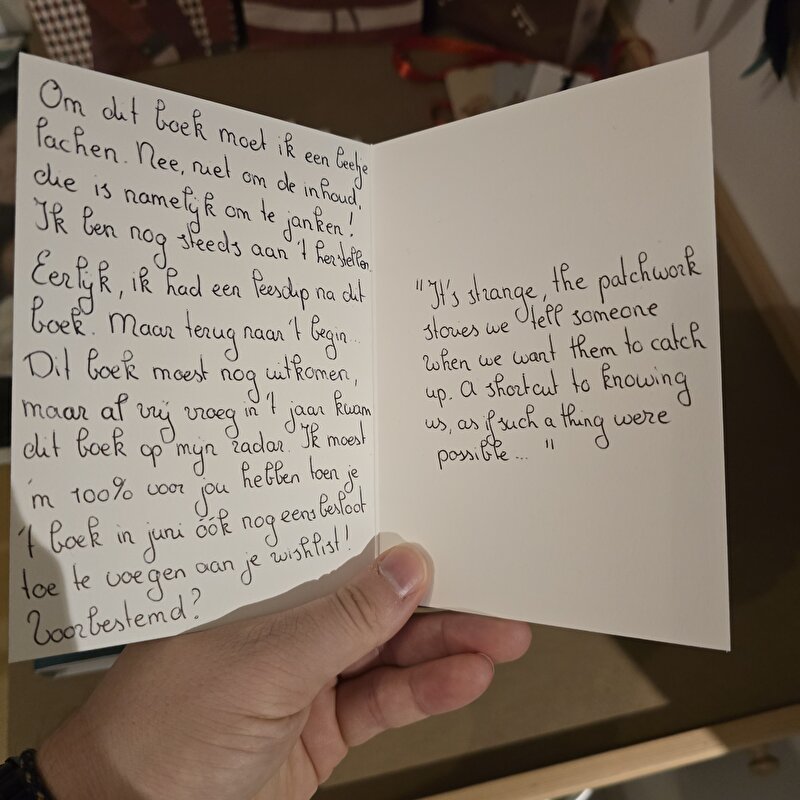 Om dit boek moet ik een beetje
lachen. Nee, niet om de inhoud,
die is namelijk om te janken!
Ik ben nog steeds aan 't herstellen.
Eerlijk, ik had een leesdip na dit
boek. Maar terug naar 't begin...
Dit boek moest nog uitkomen,
maar al vrij vroeg in 't jaar kwam
dit boek op mijn radar. Ik moest
'm 100% voor jou hebben toen je
't boek in juni óók nog eens besloot
toe te voegen aan je wishlist!
Voorbestemd?
"It's strange, the patchwork
stories we tell someone
when we want them to catch
up. A shortcut to knowing
us, as if such a thing were
possible... "